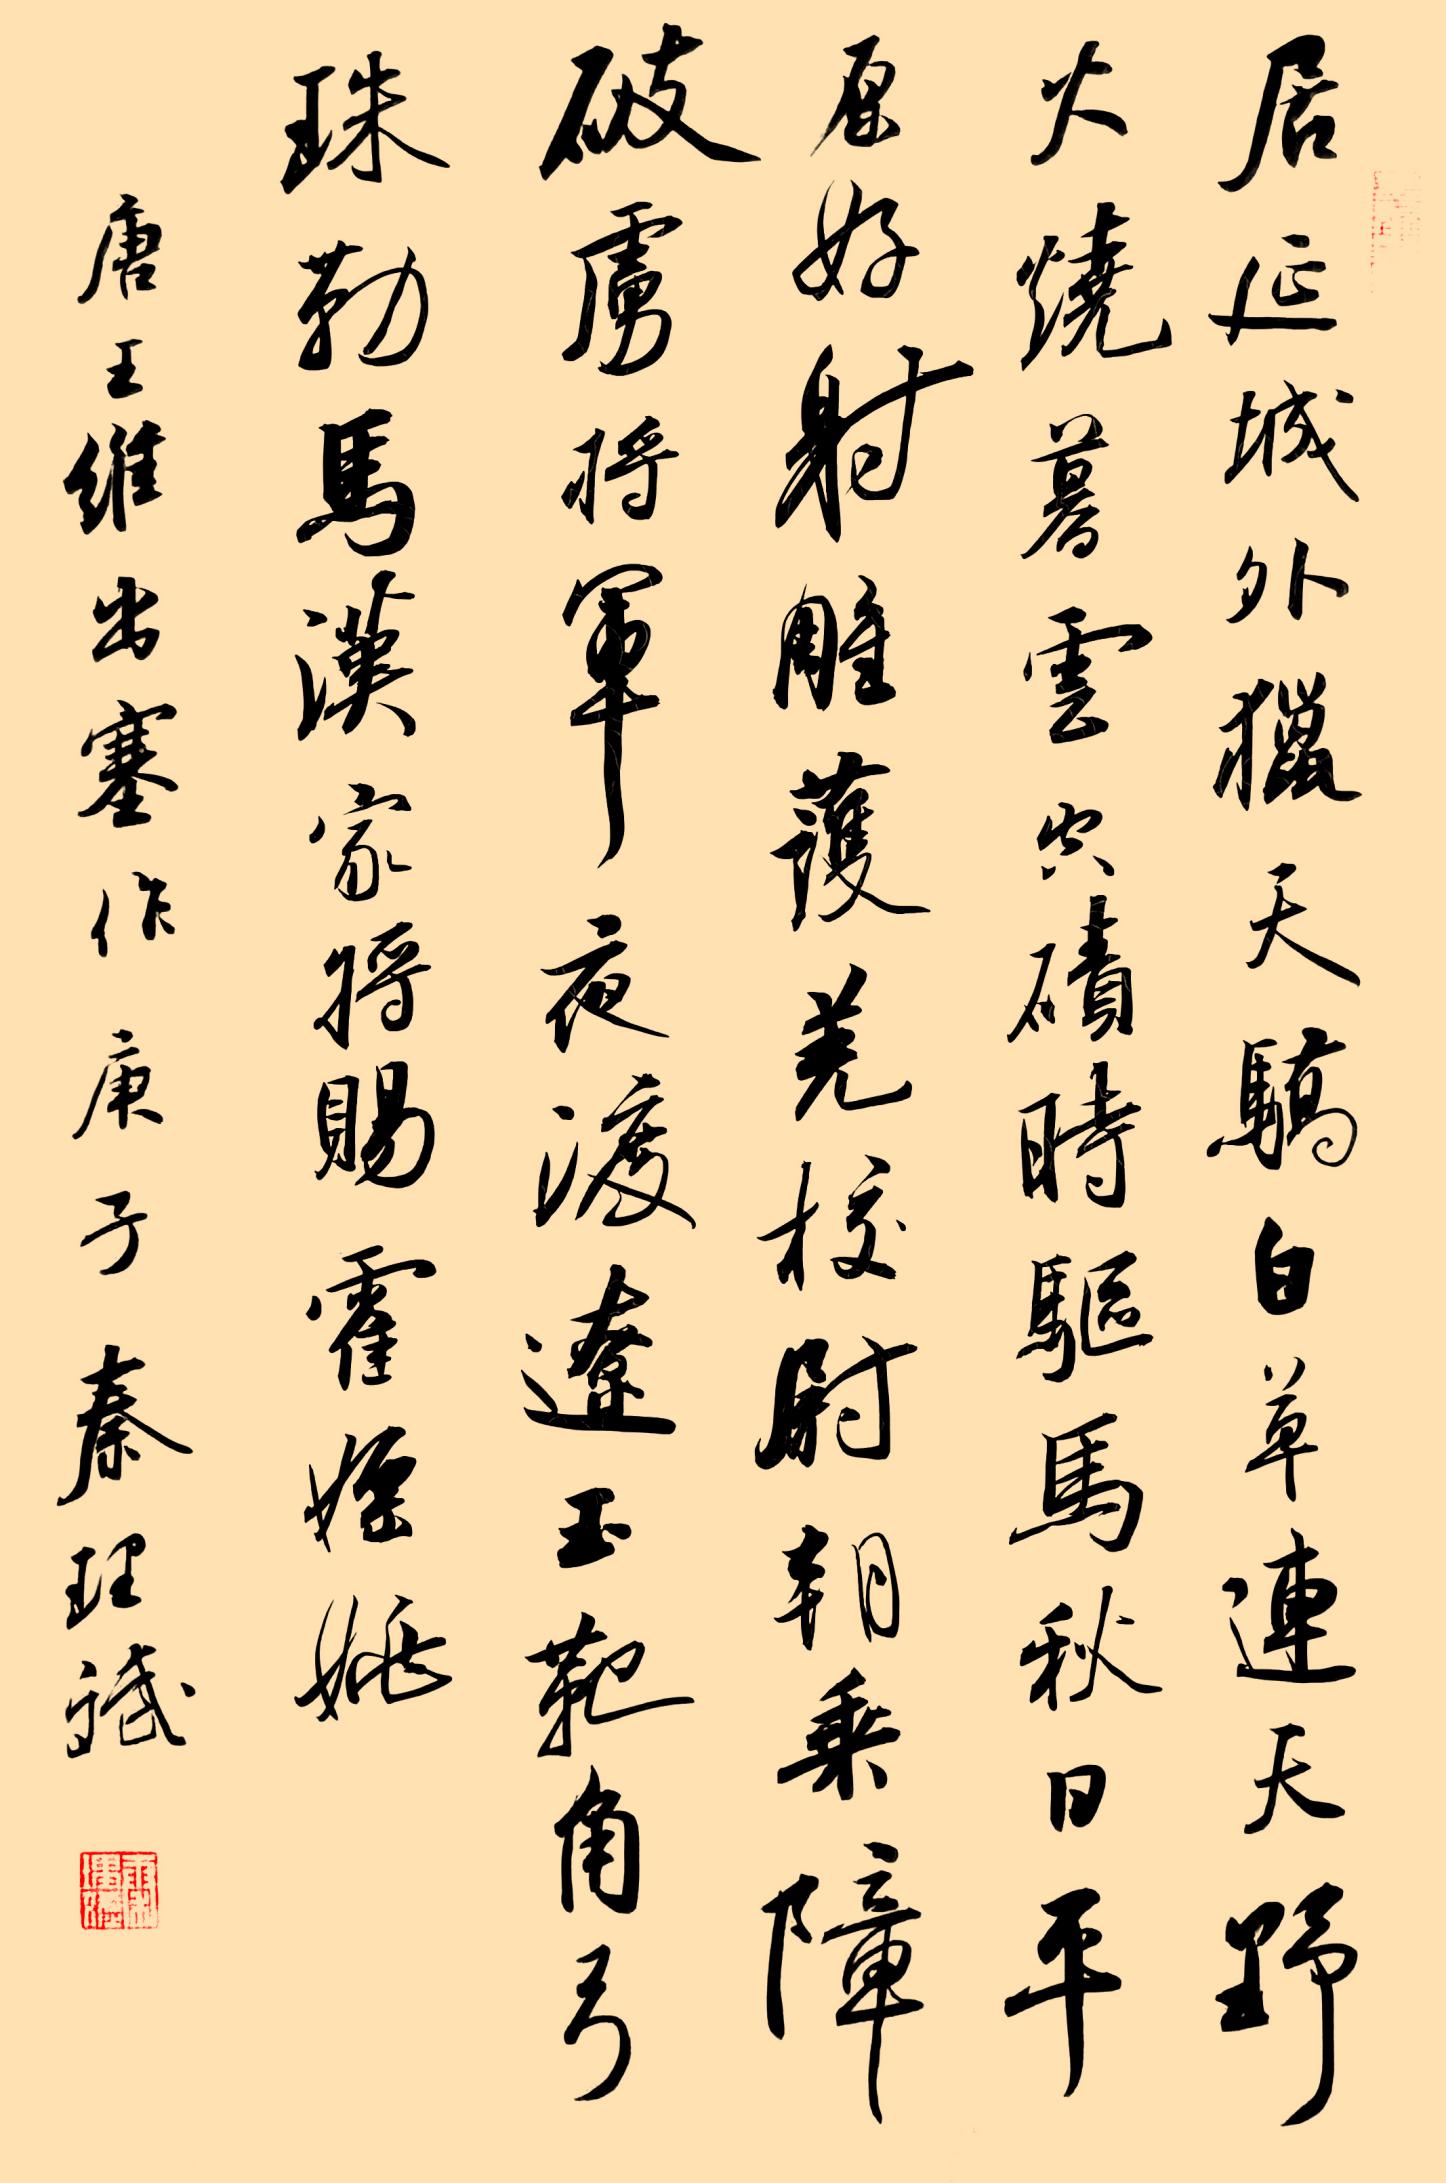 居延城外獵天驕白草連天野
火燒暮雲空磧時驅馬秋日平
原好射雕護羌校尉朝乘障
破虜將軍夜渡遼玉靶角弓
珠勒馬漢家將賜霍嫖姚
唐王維出塞作庚子秦理斌